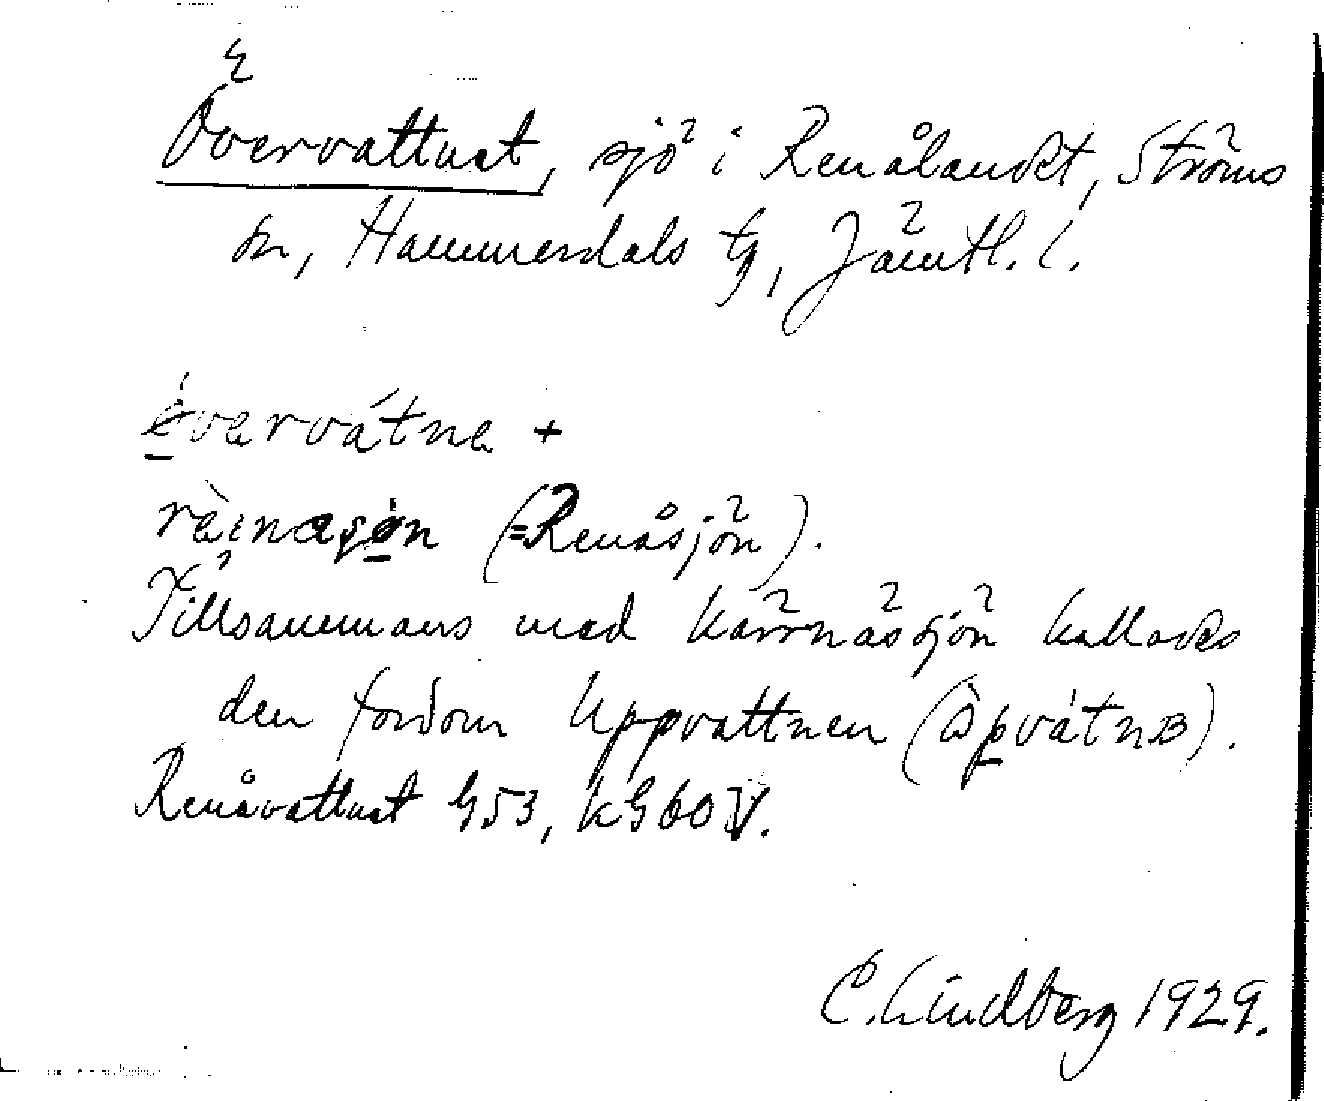 Övervattnet, sjö i Renålandet, Ströms
sn, Hammerdals tg, Jämtl. l.
övervátna +
rèinasjön (=Renåsjön).
Tillsammans med Kärrnäsjön kallades
den fordom Uppvattnen (òpvátnB).
Renåvattnet G53, kG60V.
C. Lindberg 1929.